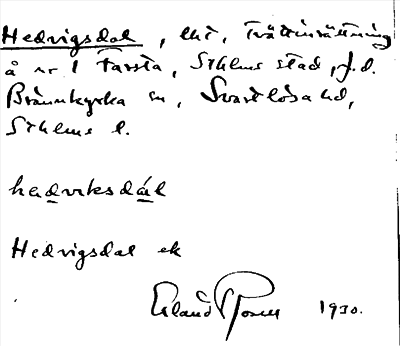 Hedvigsdal, lht, Tvättinrättning
å nr 1 Farsta, Sthlms stad, f.d.
Brännkyrka sn, Svartlösa hd,
Sthlms l.
hedviksdál
Hedvigsdal ek
Erland Rosell 1930.